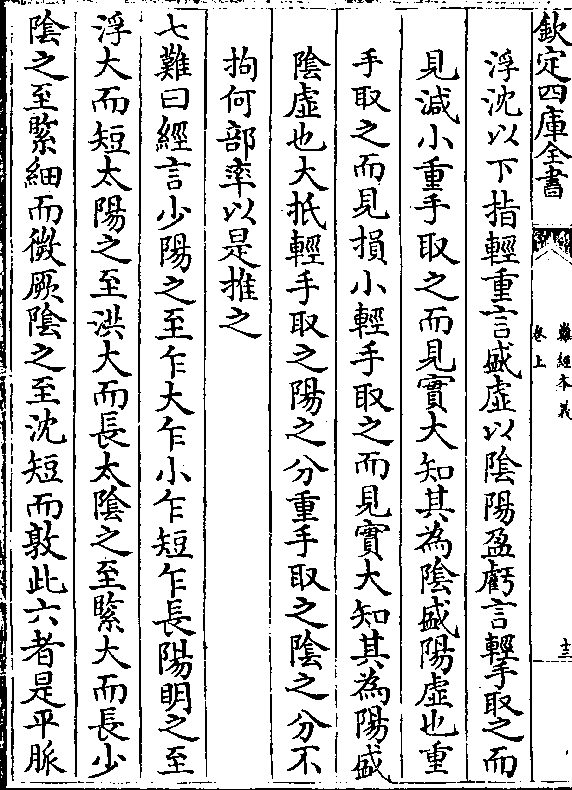 欽定四庫全書
難經本義
卷上
十三
浮沈以下指輕重言盛虛以陰陽盈虧言輕手取之而
見減小重手取之而見實大知其為陰盛陽虛也重
手取之而見損小輕手取之而見實大知其為陽盛
陰虛也大抵輕手取之陽之分重手取之陰之分不
拘何部率以是推之
七難曰經言少陽之至乍大乍小乍短乍長陽明之至
浮大而短太陽之至洪大而長太陰之至緊大而長少
陰之至緊細而微厥陰之至沈短而敦此六者是平脈